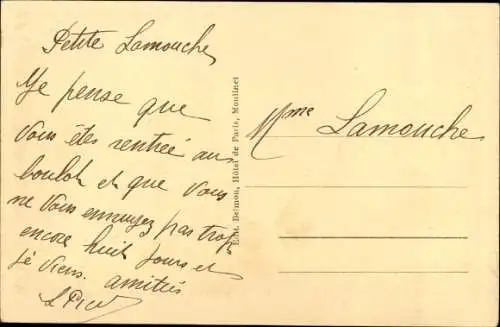 Petite Lamouche,
Je pense que
vous êtes rentrée au
boulot et que vous
ne vous ennuyez pas trop
encore huit jours et
je viens. amitiés
Edit. Delmon, Hôtel de Paris, Moulinet
Mme Lamouche